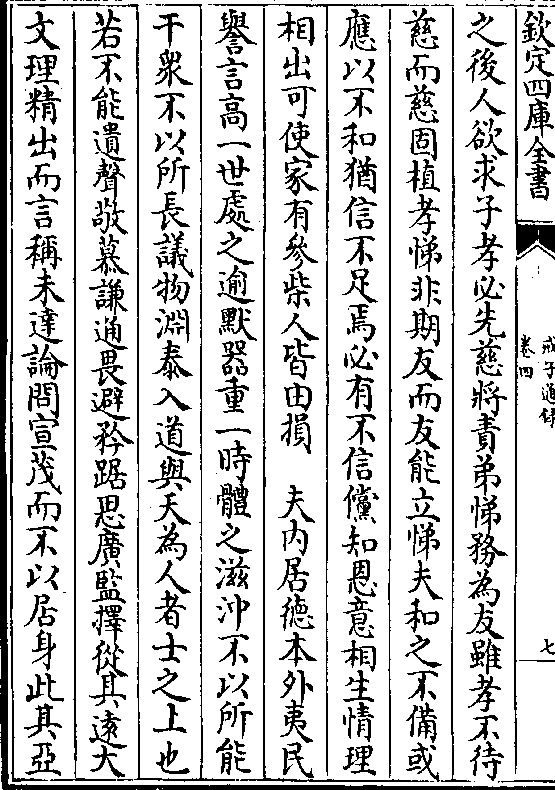 欽定四庫全書
戒子通錄
卷四
七
之後人欲求子孝必先慈將責弟悌務為友雖孝不待
慈而慈固植孝悌非期友而友能立悌夫和之不備或
應以不和猶信不足焉必有不信儻知恩意相生情理
相出可使家有參柴人皆由損　夫内居德本外夷民
譽言高一世處之逾默器重一時體之滋沖不以所能
干衆不以所長議物淵泰入道與天為人者士之上也
若不能遺聲敬慕謙通畏避矜踞思廣監擇從其逺大
文理精出而言稱未達論問宣茂而不以居身此其亞